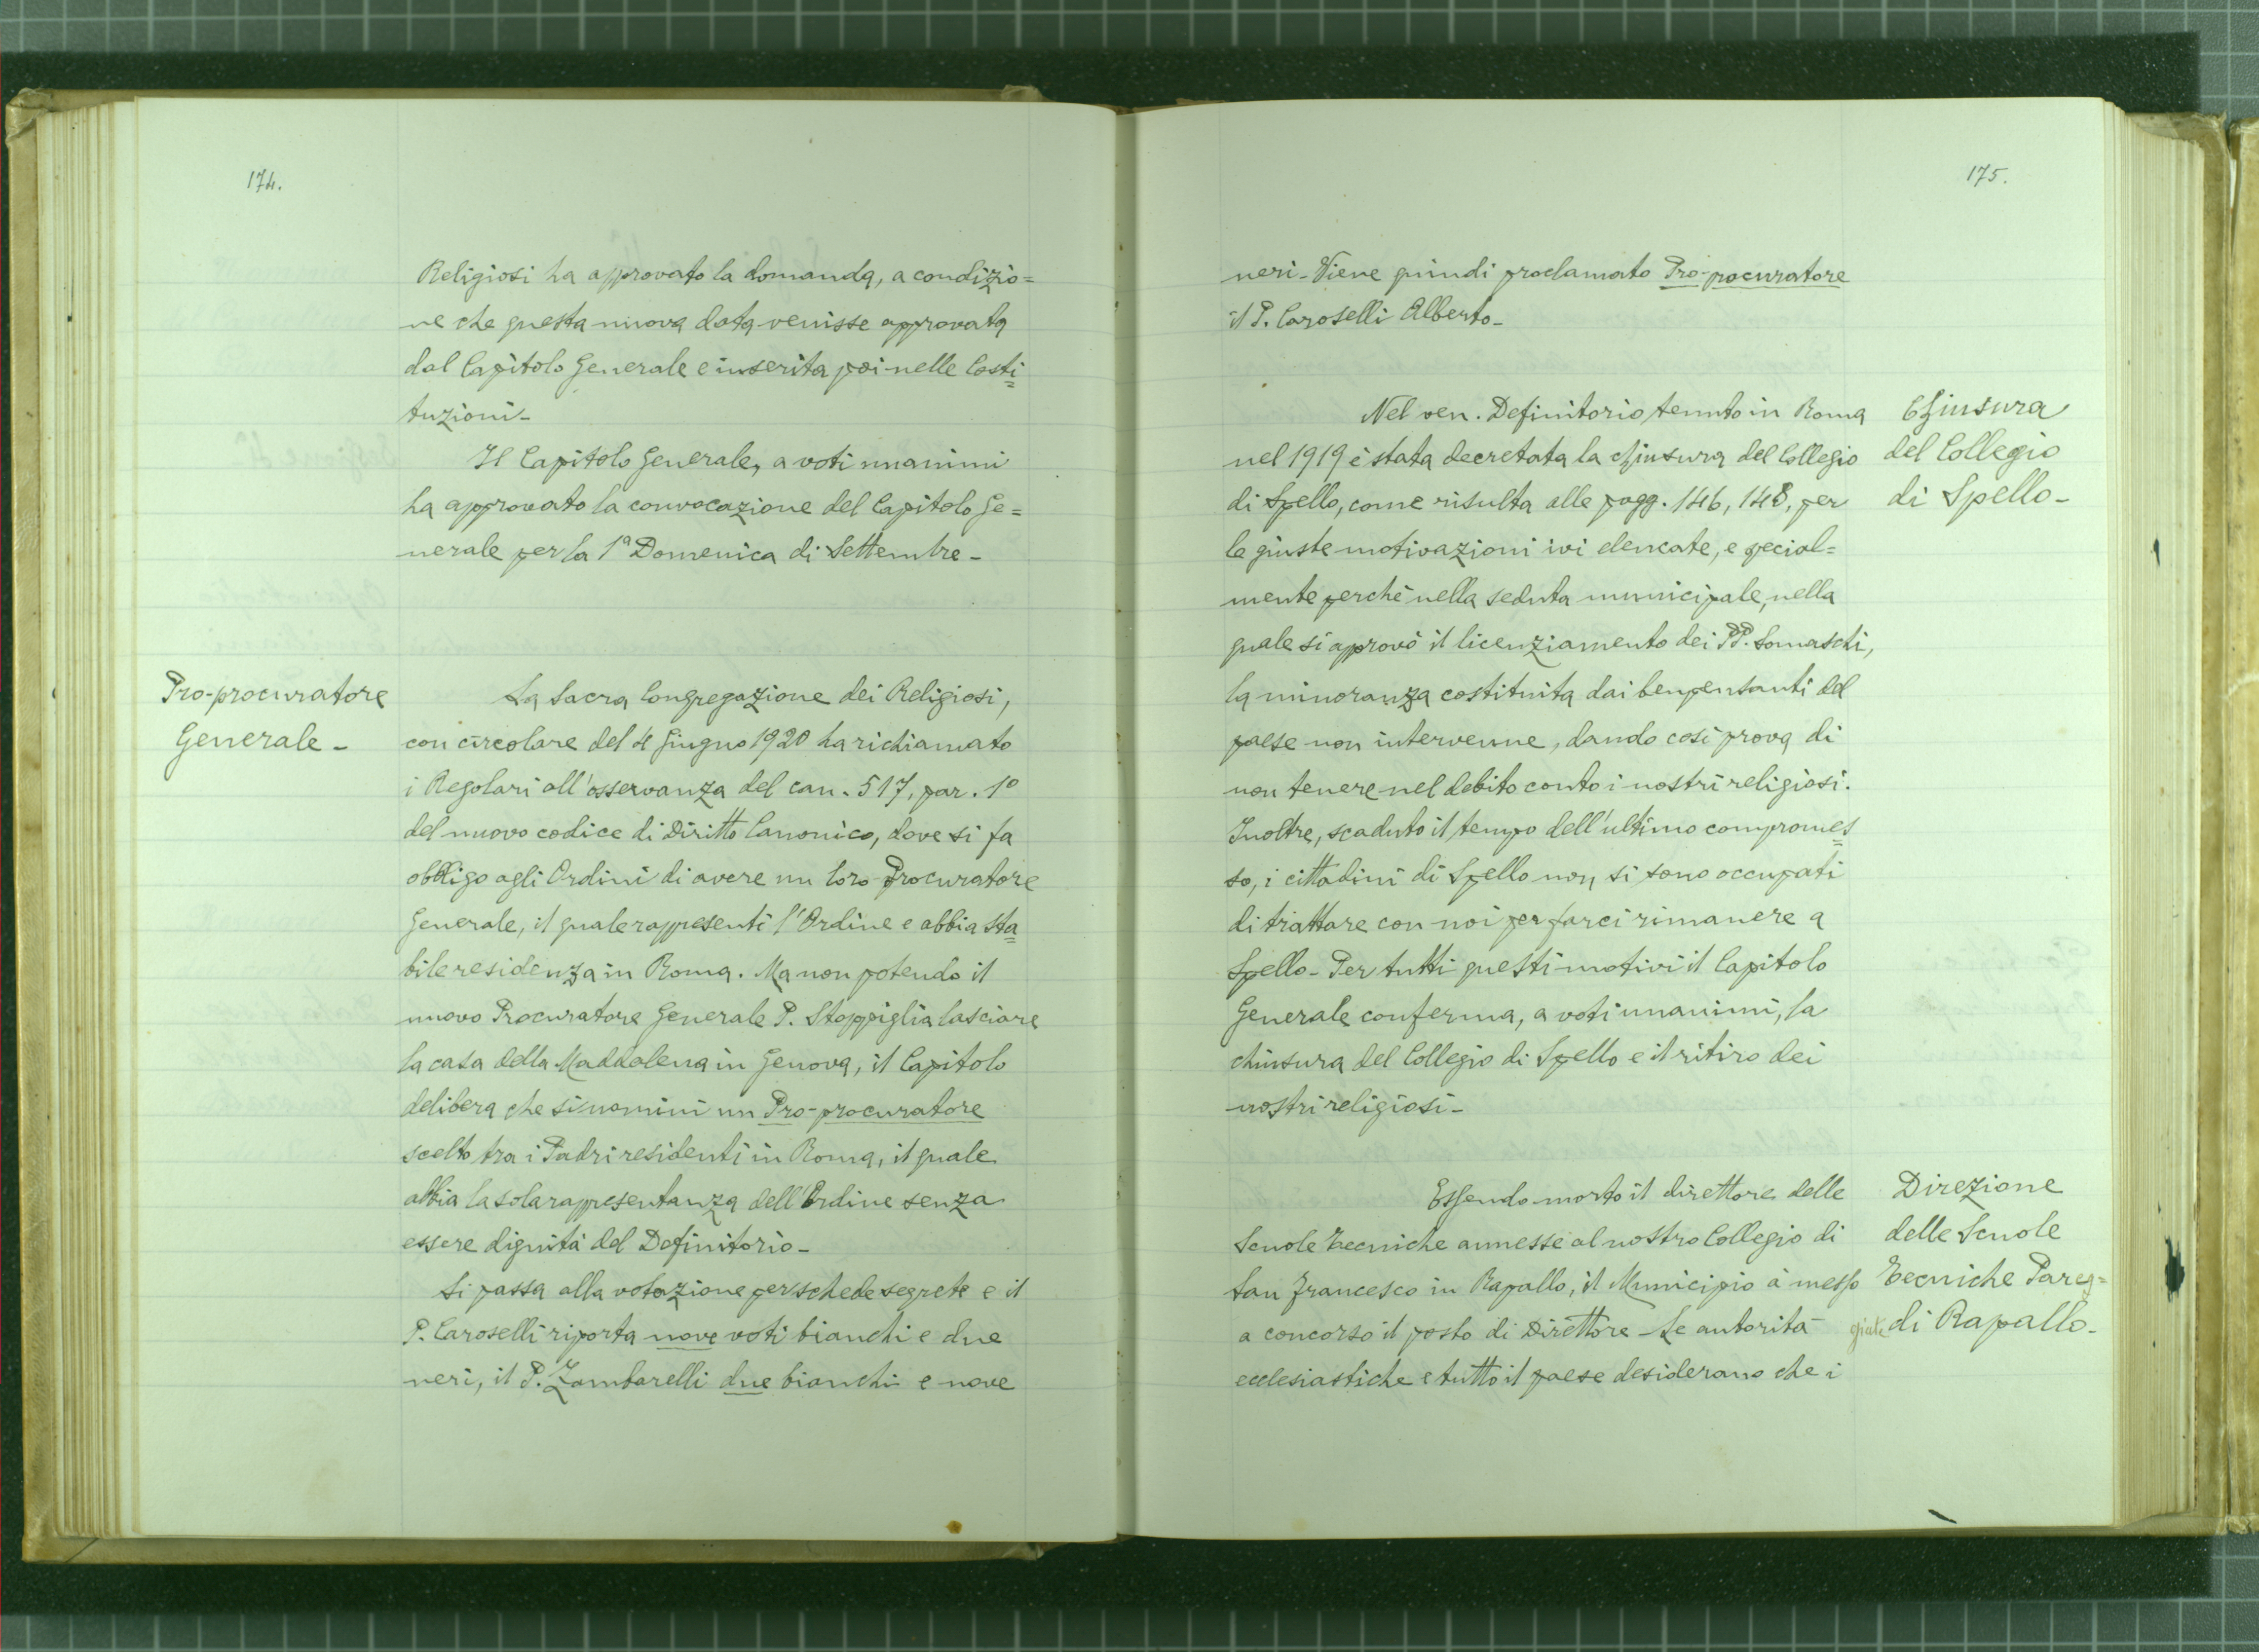 174.
Religiosi ha approvato la domanda, a condizio=
ne che questa nuova data venisse approvata
dal Capitolo Generale e inserita poi nelle Costi=
tuzioni-
Il Capitolo Generale, a voti unanimi
ha approvato la convocazione del Capitolo Ge=
nerale per la 1ª Domenica di Settembre-
Pro-procuratore
Generale-
La Sacra Congregazione dei Religiosi,
con circolare del 4 Giugno 1920 ha richiamato
i Regolari all'osservanza del can. 517, par. 1º
del nuovo codice di Diritto Canonico, dove si fa
obbligo agli Ordini di avere un loro Procuratore
Generale, il quale rappresenti l'Ordine e abbia sta=
bile residenza in Roma. Ma non potendo il
nuovo Procuratore Generale P. Stoppiglia lasciare
la casa della Maddalena in Genova, il Capitolo
delibera che si nomini un Pro-procuratore
scelto tra i Padri residenti in Roma, il quale
abbia la sola rappresentanza dell'Ordine senza
essere dignità del Definitorio-
Si passa alla votazione per schede segrete e il
P. Caroselli riporta nove voti bianchi e due
neri, il P. Zambarelli due bianchi e nove
175.
neri- Viene quindi proclamato Pro-procuratore
il P. Caroselli Alberto-
Nel ven. Definitorio tenuto in Roma
nel 1919 è stata decretata la chiusura del Collegio
di Spello, come risulta alle pagg. 146, 148, per
le giuste motivazioni ivi elencate, e special=
mente perchè nella seduta municipale, nella
quale si approvò il licenziamento dei PP. Somaschi,
la minoranza costituita dai benpensanti del
paese non intervenne, dando così prova di
non tenere nel debito conto i nostri religiosi.
Inoltre, scaduto il tempo dell'ultimo compromes=
so, i cittadini di Spello non si sono occupati
di trattare con noi per farci rimanere a
Spello- Per tutti questi motivi il Capitolo
Generale conferma, a voti unanimi, la
chiusura del Collegio di Spello e il ritiro dei
nostri religiosi-
Chiusura
del Collegio
di Spello-
Essendo morto il direttore delle
Scuole Tecniche annesse al nostro Collegio di
San Francesco in Rapallo, il Municipio à messo
a concorso il posto di Direttore- Le autorità
ecclesiastiche e tutto il paese desiderano che i
Direzione
delle Scuole
Tecniche Pareg=
giate di Rapallo-